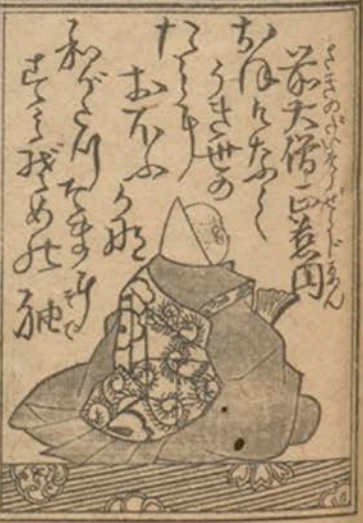 さきのだいそうぜうじゑん
前大僧正慈円
おほけなく
うき世の
たみに
おほふかな
わがたつそまに
すみぞめの袖
そで